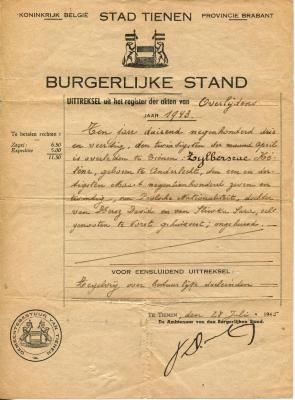 KONINKRIJK BELGIË STAD TIENEN PROVINCIE BRABANT
BURGERLIJKE STAND
UITTREKSEL uit het register der akten van Overlijdens
JAAR 1943.
Te betalen rechten :
Zegel 6.50
Expeditie 5.00
11.50
Een jaar duizend negenhonderd drie
en veertig, den twintigsten der maand April
is overleden te Tienen: Zylberszac Hé-
lène, geboren te Anderlecht, den een en der-
tigsten negentienhonderd zeven en
twintig, van Nationaliteit, dochter
van Hersz Dawid en van Sura, echt-
genoten te Vorst gehuisvest; ongehuwd.
VOOR EENSLUIDEND UITTREKSEL :
over
Te TIENEN, den 28 Juli 1945
De Ambtenaar van den Burgerlijken Stand,
GEMEENTEBESTUUR VAN TIENEN